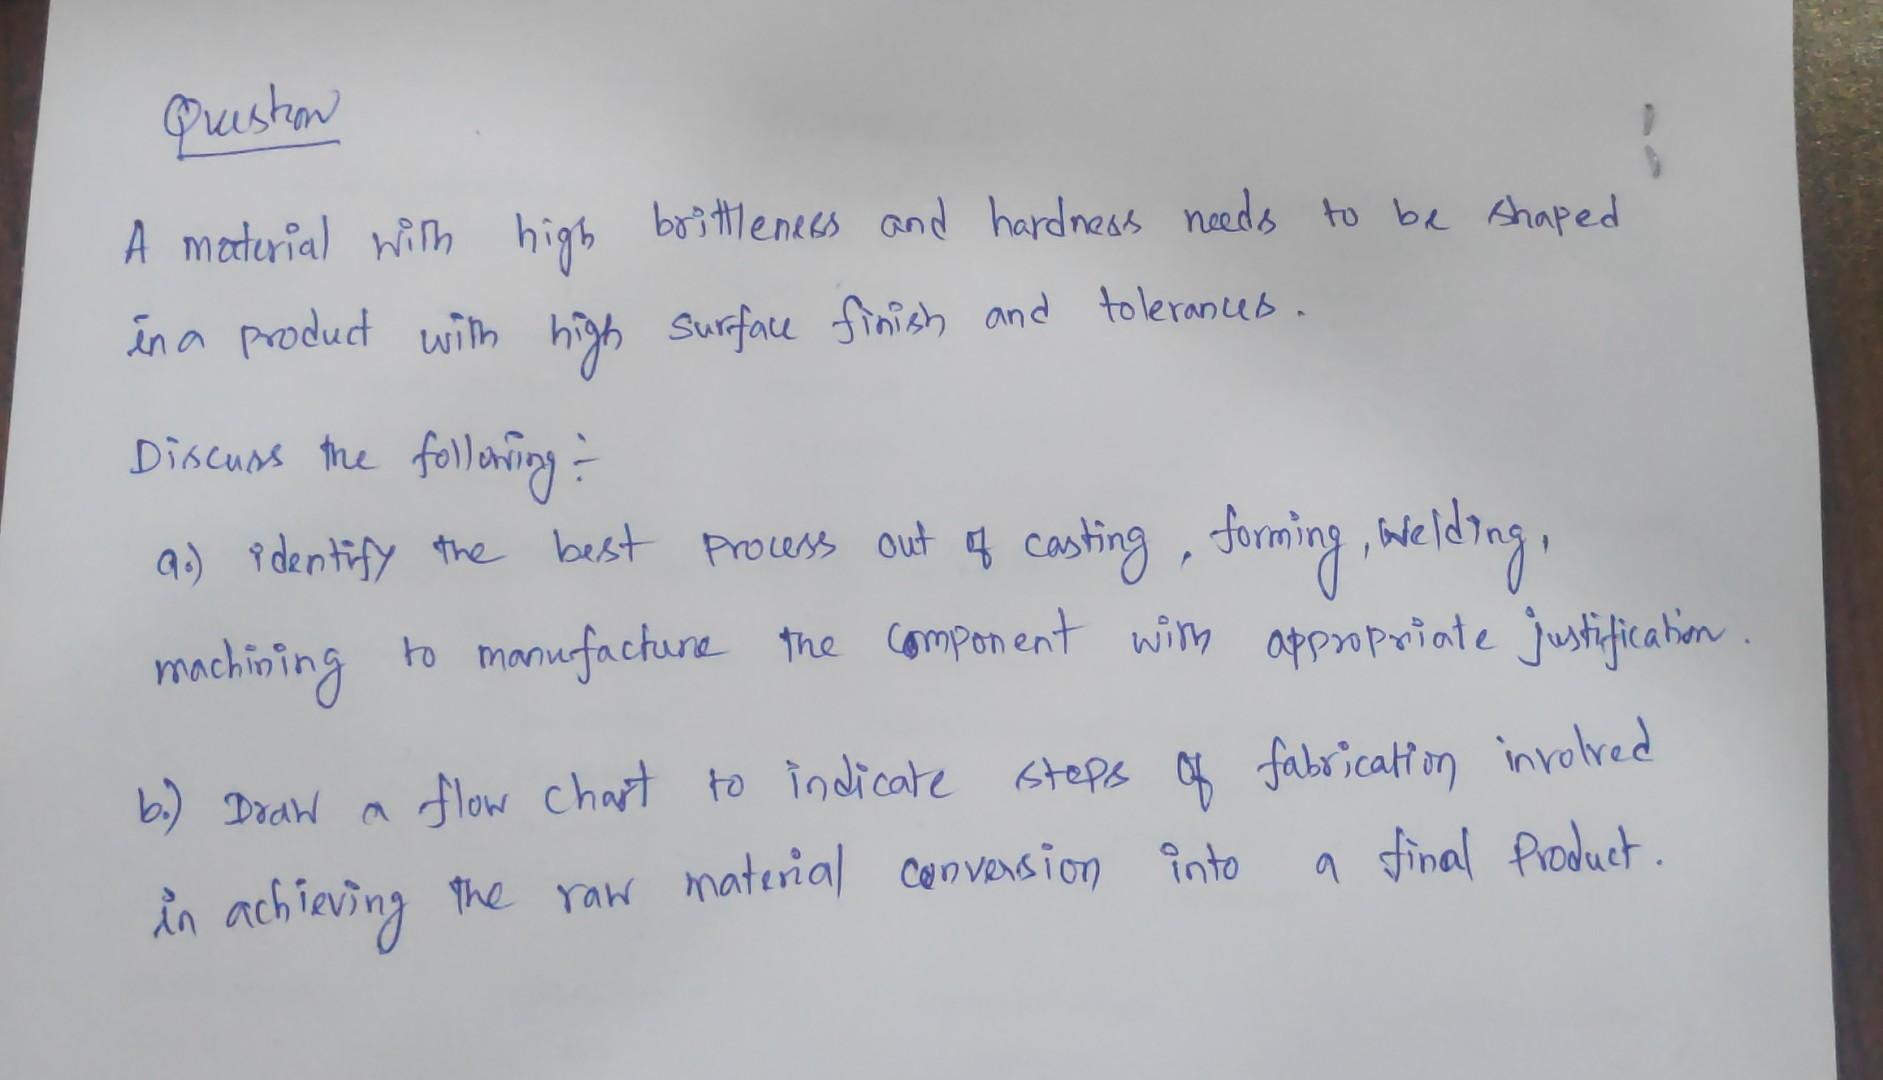 Question
A material with high brittleness and hardness needs to be shaped
in a product with high surface finish and tolerances.
Discuss the following :-
a.) identify the best process out of casting, forming, welding,
machining to manufacture the component with appropriate justification.
b.) Draw a flow chart to indicate steps of fabrication involved
in achieving the raw material conversion into a final product.